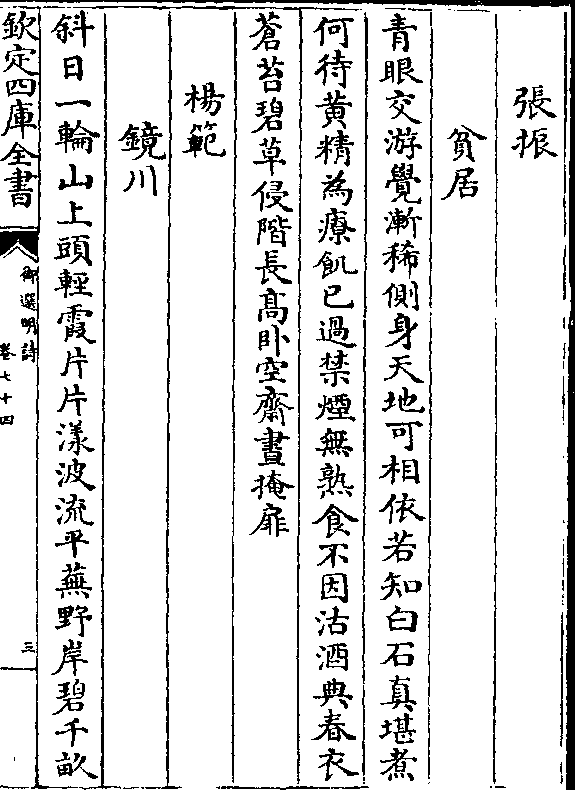 張振
貧居
青眼交游覺漸稀側身天地可相依若知白石真堪煮
何待黄精為療飢已過禁煙無熟食不因沽酒典春衣
蒼苔碧草侵階長高卧空齋晝掩扉
楊範
鏡川
斜日一輪山上頭輕霞片片漾波流平蕪野岸碧千畝
欽定四庫全書
御選明詩
卷七十四
三